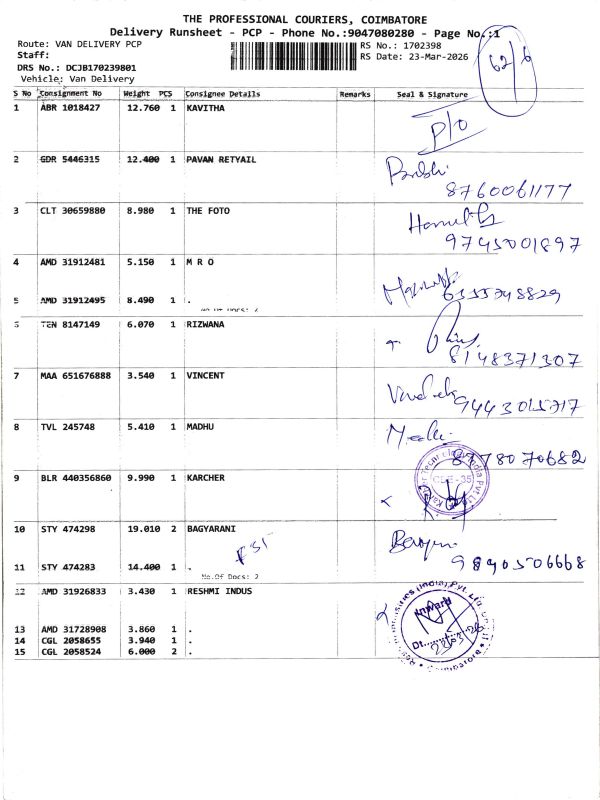 THE PROFESSIONAL COURIERS, COIMBATORE
Delivery Runsheet - PCP - Phone No.:9047080280 - Page No.:1
Route: VAN DELIVERY PCP
RS No.: 1702398
Staff:
RS Date: 23-Mar-2026
DRS No.: DCJB170239801
Vehicle: Van Delivery
62/6
S No Consignment No Weight PCS Consignee Details Remarks Seal & Signature
1 ABR 1018427 12.760 1 KAVITHA
P/O
2 GDR 5446315 12.400 1 PAVAN RETYAIL
8760061177
3 CLT 30659880 8.980 1 THE FOTO
9745001897
4 AMD 31912481 5.150 1 M R O
5 AMD 31912495 8.490 1 .
No.Of Docs: 2
6 TEN 8147149 6.070 1 RIZWANA
8148371307
7 MAA 651676888 3.540 1 VINCENT
8 TVL 245748 5.410 1 MADHU
8778070682
9 BLR 440356860 9.990 1 KARCHER
CBE-35
10 STY 474298 19.010 2 BAGYARANI
11 STY 474283 14.400 1 .
No.Of Docs: 2
12 AMD 31926833 3.430 1 RESHMI INDUS
Inward
13 AMD 31728908 3.860 1 .
14 CGL 2058655 3.940 1 .
15 CGL 2058524 6.000 2 .